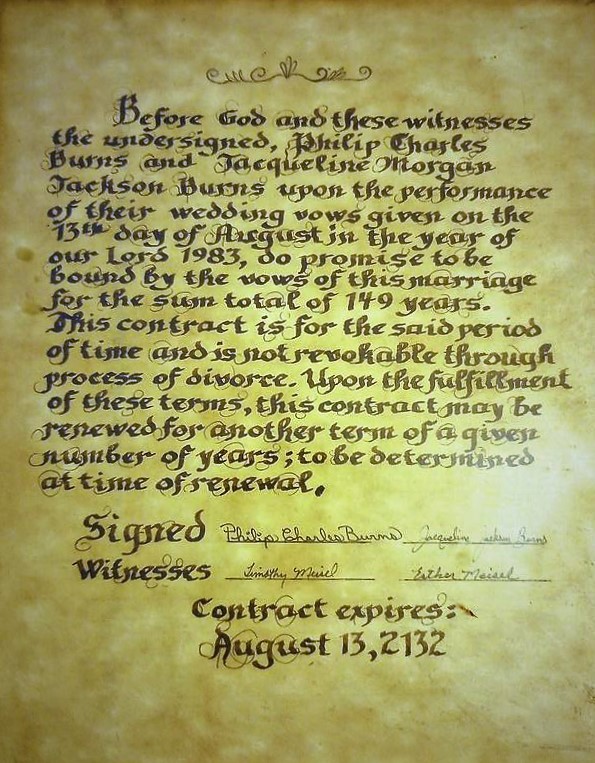 Before God and these witnesses
the undersigned, Philip Charles
Burns and Jacqueline Morgan
Jackson Burns upon the performance
of their wedding vows given on the
13th day of August in the year of
our Lord 1983, do promise to be
bound by the vows of this marriage
for the sum total of 149 years.
This contract is for the said period
of time and is not revokable through
process of divorce. Upon the fulfillment
of these terms, this contract may be
renewed for another term of a given
number of years; to be determined
at time of renewal.
Signed Philip Charles Burns Jacqueline Jackson Burns
Witnesses Timothy Meisel Esther Meisel
Contract expires:
August 13, 2132